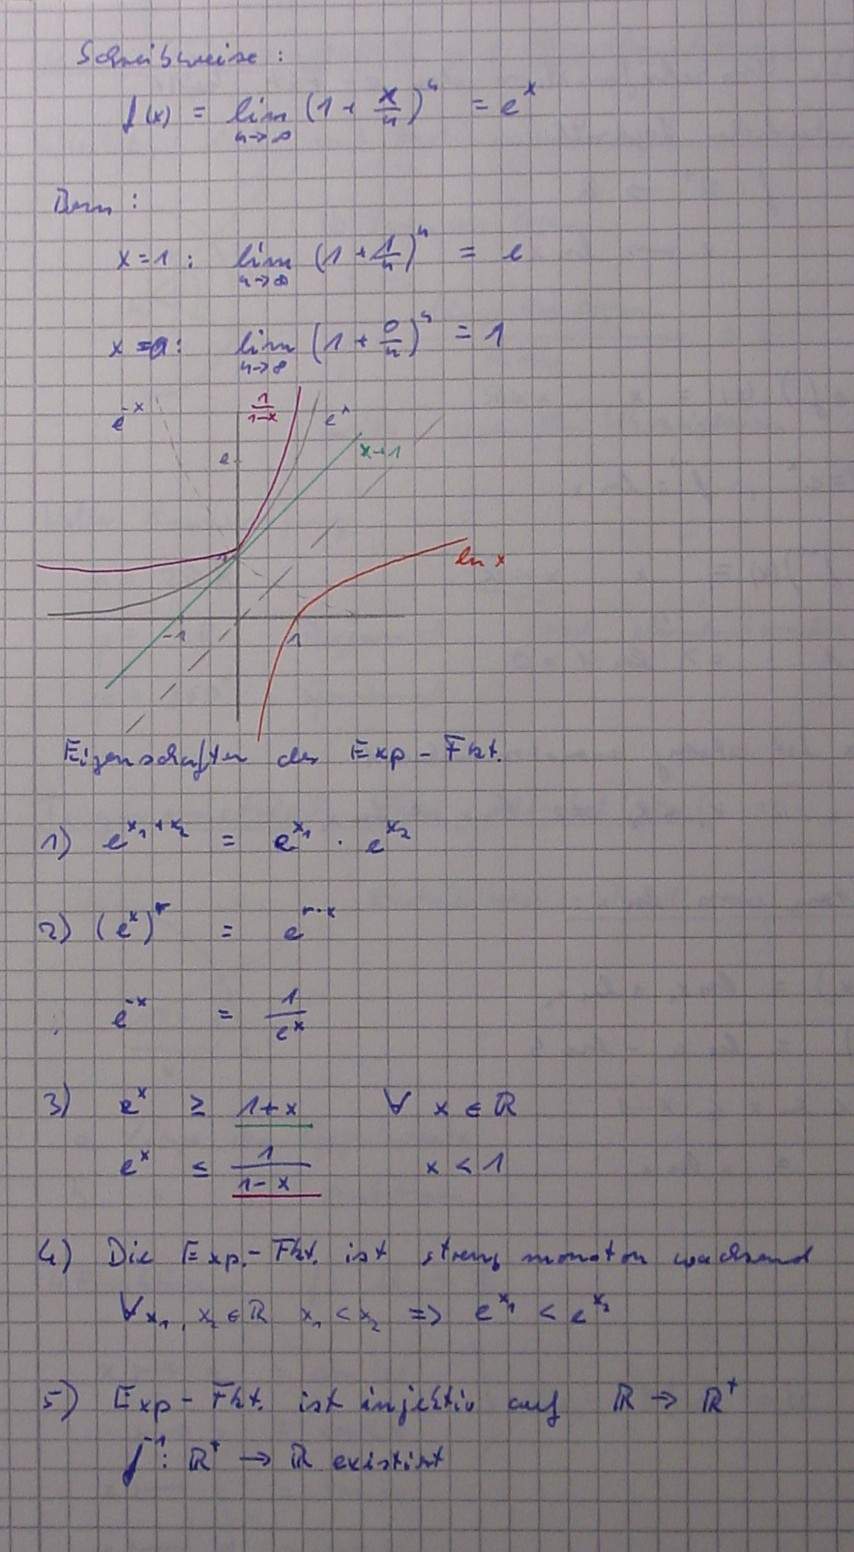 Schreibweise:
f(x) = lim n→∞ (1 + x/n)^n = e^x
Bem:
x=1: lim n→∞ (1 + 1/n)^n = e
x=0: lim n→∞ (1 + 0/n)^n = 1
e^-x 1/(1-x) e^x
x+1
e
1
ln x
-1 1
Eigenschaften der Exp-Fkt.
1) e^(x₁+x₂) = e^x₁ · e^x₂
2) (e^x)^r = e^(r·x)
e^-x = 1/e^x
3) e^x ≥ 1+x ∀ x ∈ ℝ
e^x ≤ 1/(1-x) x < 1
4) Die Exp.-Fkt. ist streng monoton wachsend
∀x₁, x₂ ∈ ℝ x₁ < x₂ => e^x₁ < e^x₂
5) Exp-Fkt. ist injektiv auf ℝ → ℝ⁺
f⁻¹: ℝ⁺ → ℝ existiert